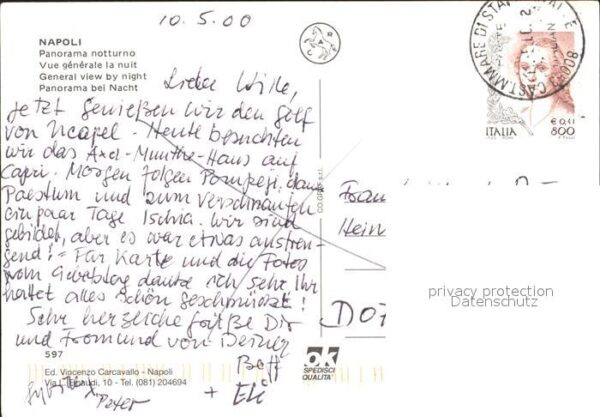 10.5.00
NAPOLI
Panorama notturno
Vue générale la nuit
General view by night
Panorama bei Nacht
Liebe
jetzt genießen wir den Golf
von Neapel. Heute besuchten
wir das Axel-Munthe-Haus auf
Capri. Morgen folgen Pompeji, dann
Paestum und zum Verschnaufen
ein paar Tage Ischia. Wir sind
gebildet, aber es war etwas anstren-
gend! - Für Karte und die Fotos
vom Geburtstag danke ich sehr. Ihr
hattet alles schön geschmückt!
Sehr herzliche Grüße Dir
und von Deiner
+ Eli
Peter
597
Ed. Vincenzo Carcavallo - Napoli
Via L. Einaudi, 10 - Tel. (081) 204694
ok
SPEDISCI
QUALITA'
CR
80053 CASTAMMARE DI STABIA
ITALIA
€ 0,41
800
Frau
Hein
DO
privacy protection
Datenschutz